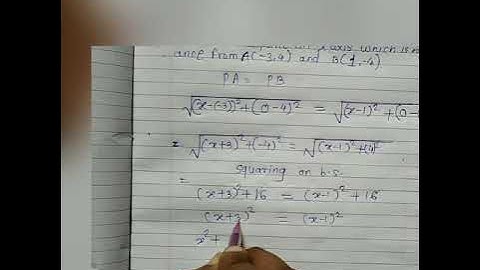 axis which is
ance from A(-3,4) and B(1,-4)
PA = PB
√(x-(-3))²+(0-4)² = √(x-1)²+(0-
= √(x+3)²+(-4)² = √(x-1)²+(4)²
squaring on b.s.
=
(x+3)²+16 = (x-1)²+16
(x+3)² = (x-1)²
x²+